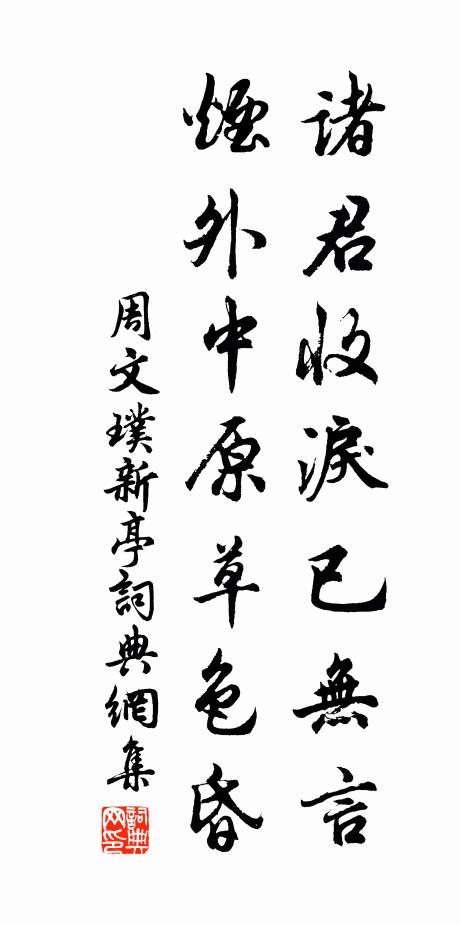 諸君收淚已無言
煙外中原草色昏
周文璞新亭詞典網集
詞典网印